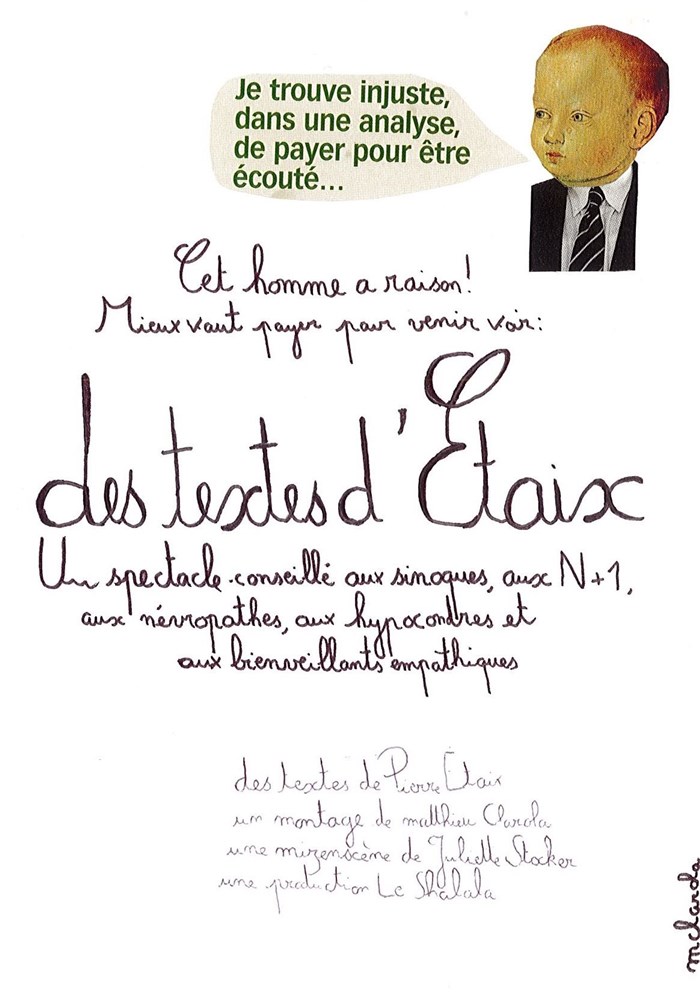 Je trouve injuste,
dans une analyse,
de payer pour être
écouté...
Cet homme a raison!
Mieux vaut payer pour venir voir:
des textes d'Étaix
Un spectacle conseillé aux sinoques, aux N+1,
aux névropathes, aux hypocondres et
aux bienveillants empathiques
des textes de Pierre Étaix
un montage de matthieu Clarola
une mizenscène de Juliette Stocker
une production Le Shalala
mclarola